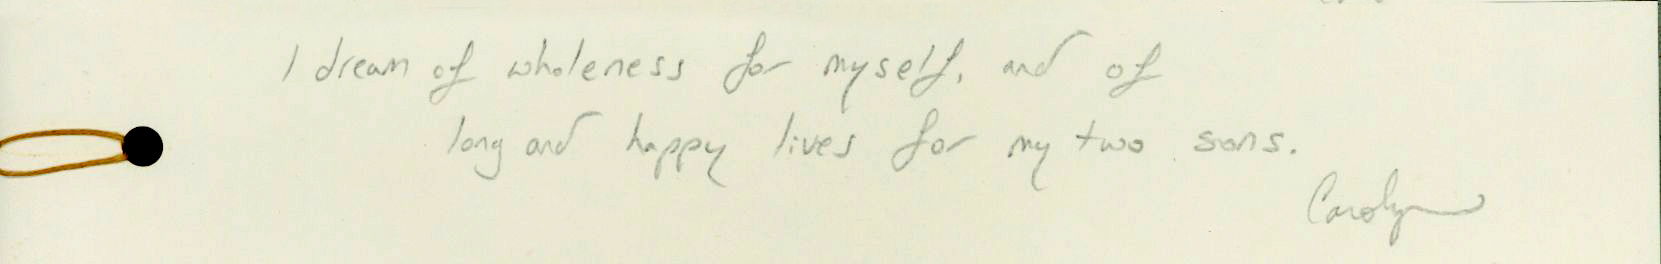 I dream of wholeness for myself, and of
long and happy lives for my two sons.
Carolyn